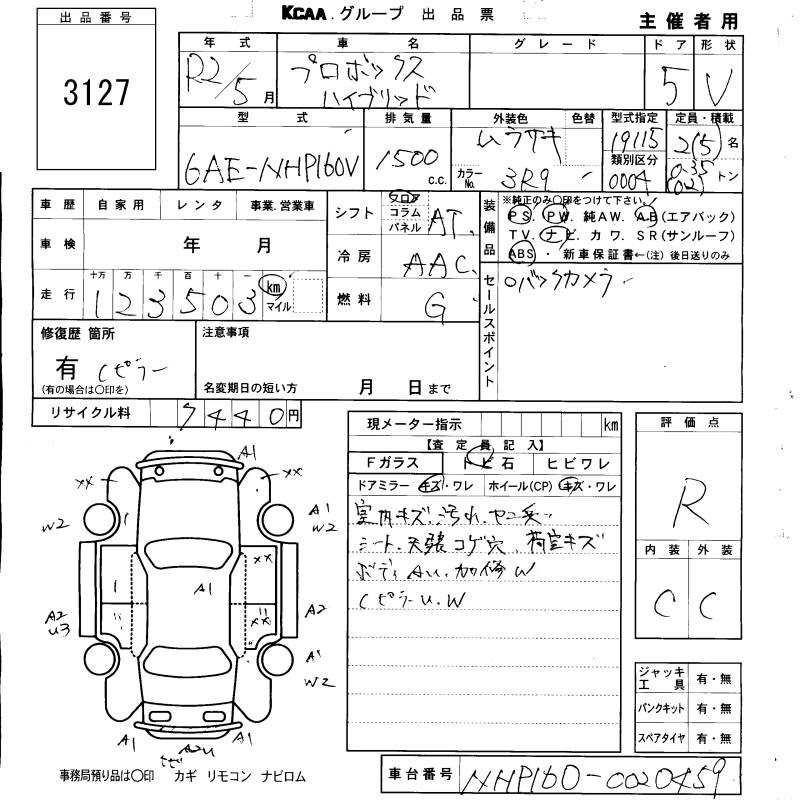 出品番号
3127
KCAA.グループ 出品票
主催者用
年式 車名 グレード ドア 形状
R2/5月 プロボックス ハイブリッド 5 V
型式 排気量 外装色 色替 型式指定 定員・積載
6AE-NHP160V 1500 c.c. ムラサキ 19115 2(5)名
カラーNo. 3R9 類別区分 0004 0.35 (0.2) トン
車歴 自家用 レンタ 事業.営業車
車検 年 月
走行 十万 万 千 百 十 一 km マイル
1 2 3 5 0 3
シフト フロア コラム パネル AT
冷房 AAC
燃料 G
装備品 ※純正のみ〇印をつけて下さい。
PS. PW. 純AW. AB(エアバック)
TV. ナビ. カワ. SR(サンルーフ)
ABS・新車保証書←(注)後日送りのみ
セールスポイント
バックカメラ
修復歴 箇所
有 Cピラー
(有の場合は〇印を)
注意事項
名変期日の短い方 月 日まで
リサイクル料 7440円
現メーター指示 km
【査定員記入】
Fガラス トビ石 ヒビワレ
ドアミラー キズ・ワレ ホイール(CP) キズ・ワレ
室内キズ.汚れ.ヤニ臭
シート.天張コゲ穴.荷室キズ
ボディAU.加修W
Cピラーu.W
評価点
R
内装 外装
C C
ジャッキ 工具 有・無
パンクキット 有・無
スペアタイヤ 有・無
A1
XX XX
W2 A1 W2
XX
A1
A2 U3 XX A2
A1 W2
A1 A2U A1
事務局預り品は〇印 カギ リモコン ナビロム
車台番号 NHP160-0020459